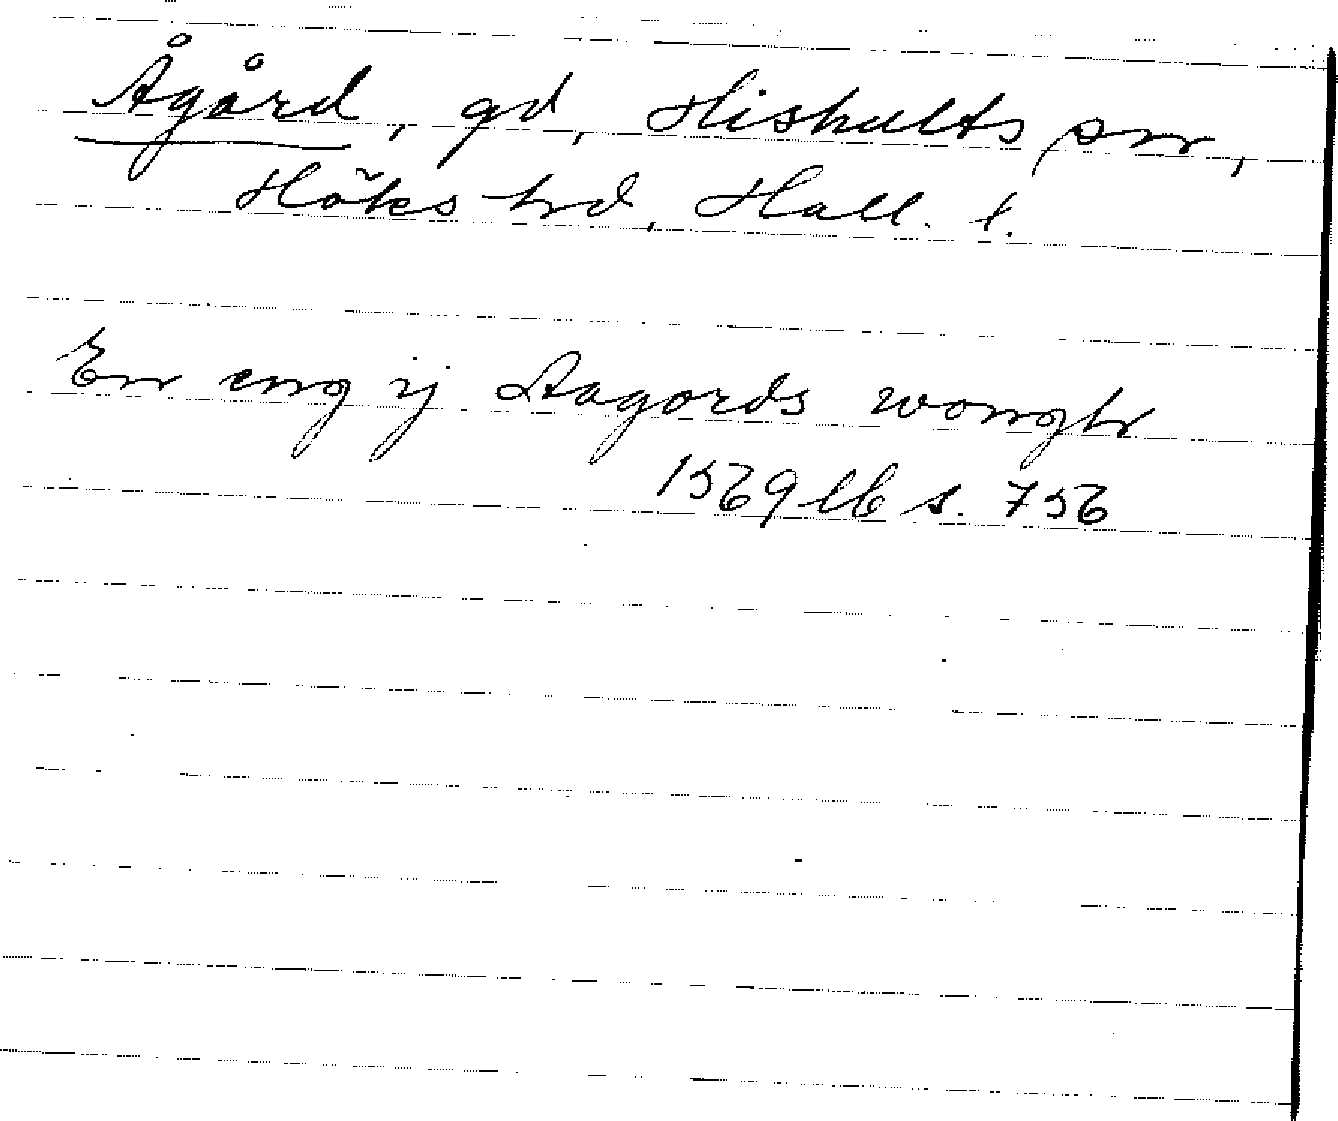 Ågård, gd, Hishults sn,
Höks hd, Hall. l.
En eng ij Aagords wongh
1569 lb s. 756